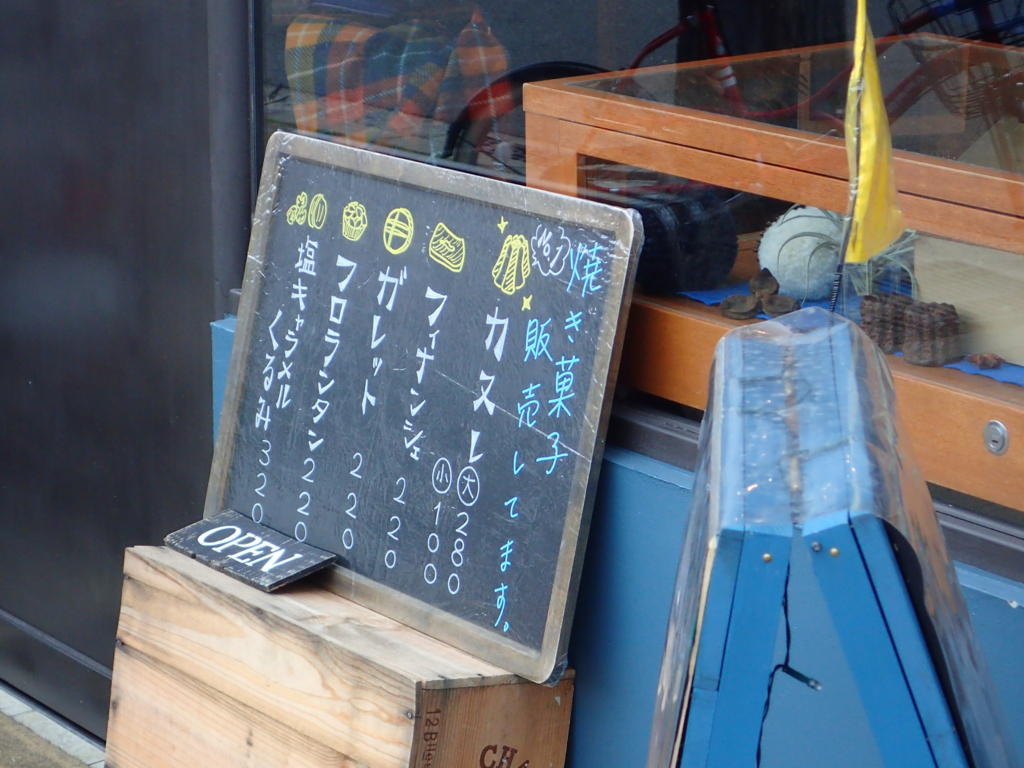 焼き菓子
販売してます。
カヌレ
大280
小100
フィナンシェ 220
ガレット 220
フロランタン 220
塩キャラメル
くるみ 320
OPEN